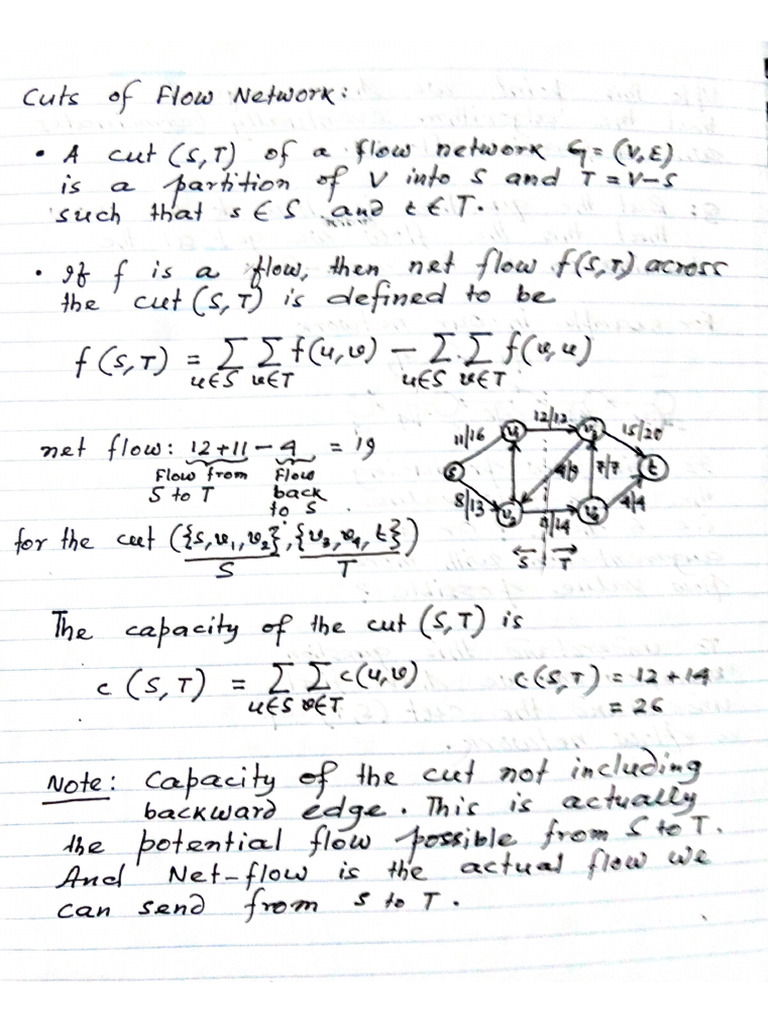 Cuts of Flow Network:
• A cut (S,T) of a flow network G = (V,E)
is a partition of V into S and T = V-S
such that s ∈ S and t ∈ T.
• If f is a flow, then net flow f(S,T) across
the cut (S,T) is defined to be
f (S,T) = Σ Σ f(u,v) - Σ Σ f(v,u)
u∈S v∈T u∈S v∈T
12/12
11/16 v1 v3 15/20
net flow: 12+11 - 4 = 19
s 4/9 7/7 t
Flow from Flow
S to T back
to S
8/13 v2 v4 4/4
11/14
for the cut ({s,v1,v2},{v3,v4,t})
S T
← S T →
The capacity of the cut (S,T) is
c (S,T) = Σ Σ c(u,v) c(S,T) = 12 + 14
u∈S v∈T = 26
Note: Capacity of the cut not including
backward edge. This is actually
the potential flow possible from S to T.
And Net-flow is the actual flow we
can send from S to T.